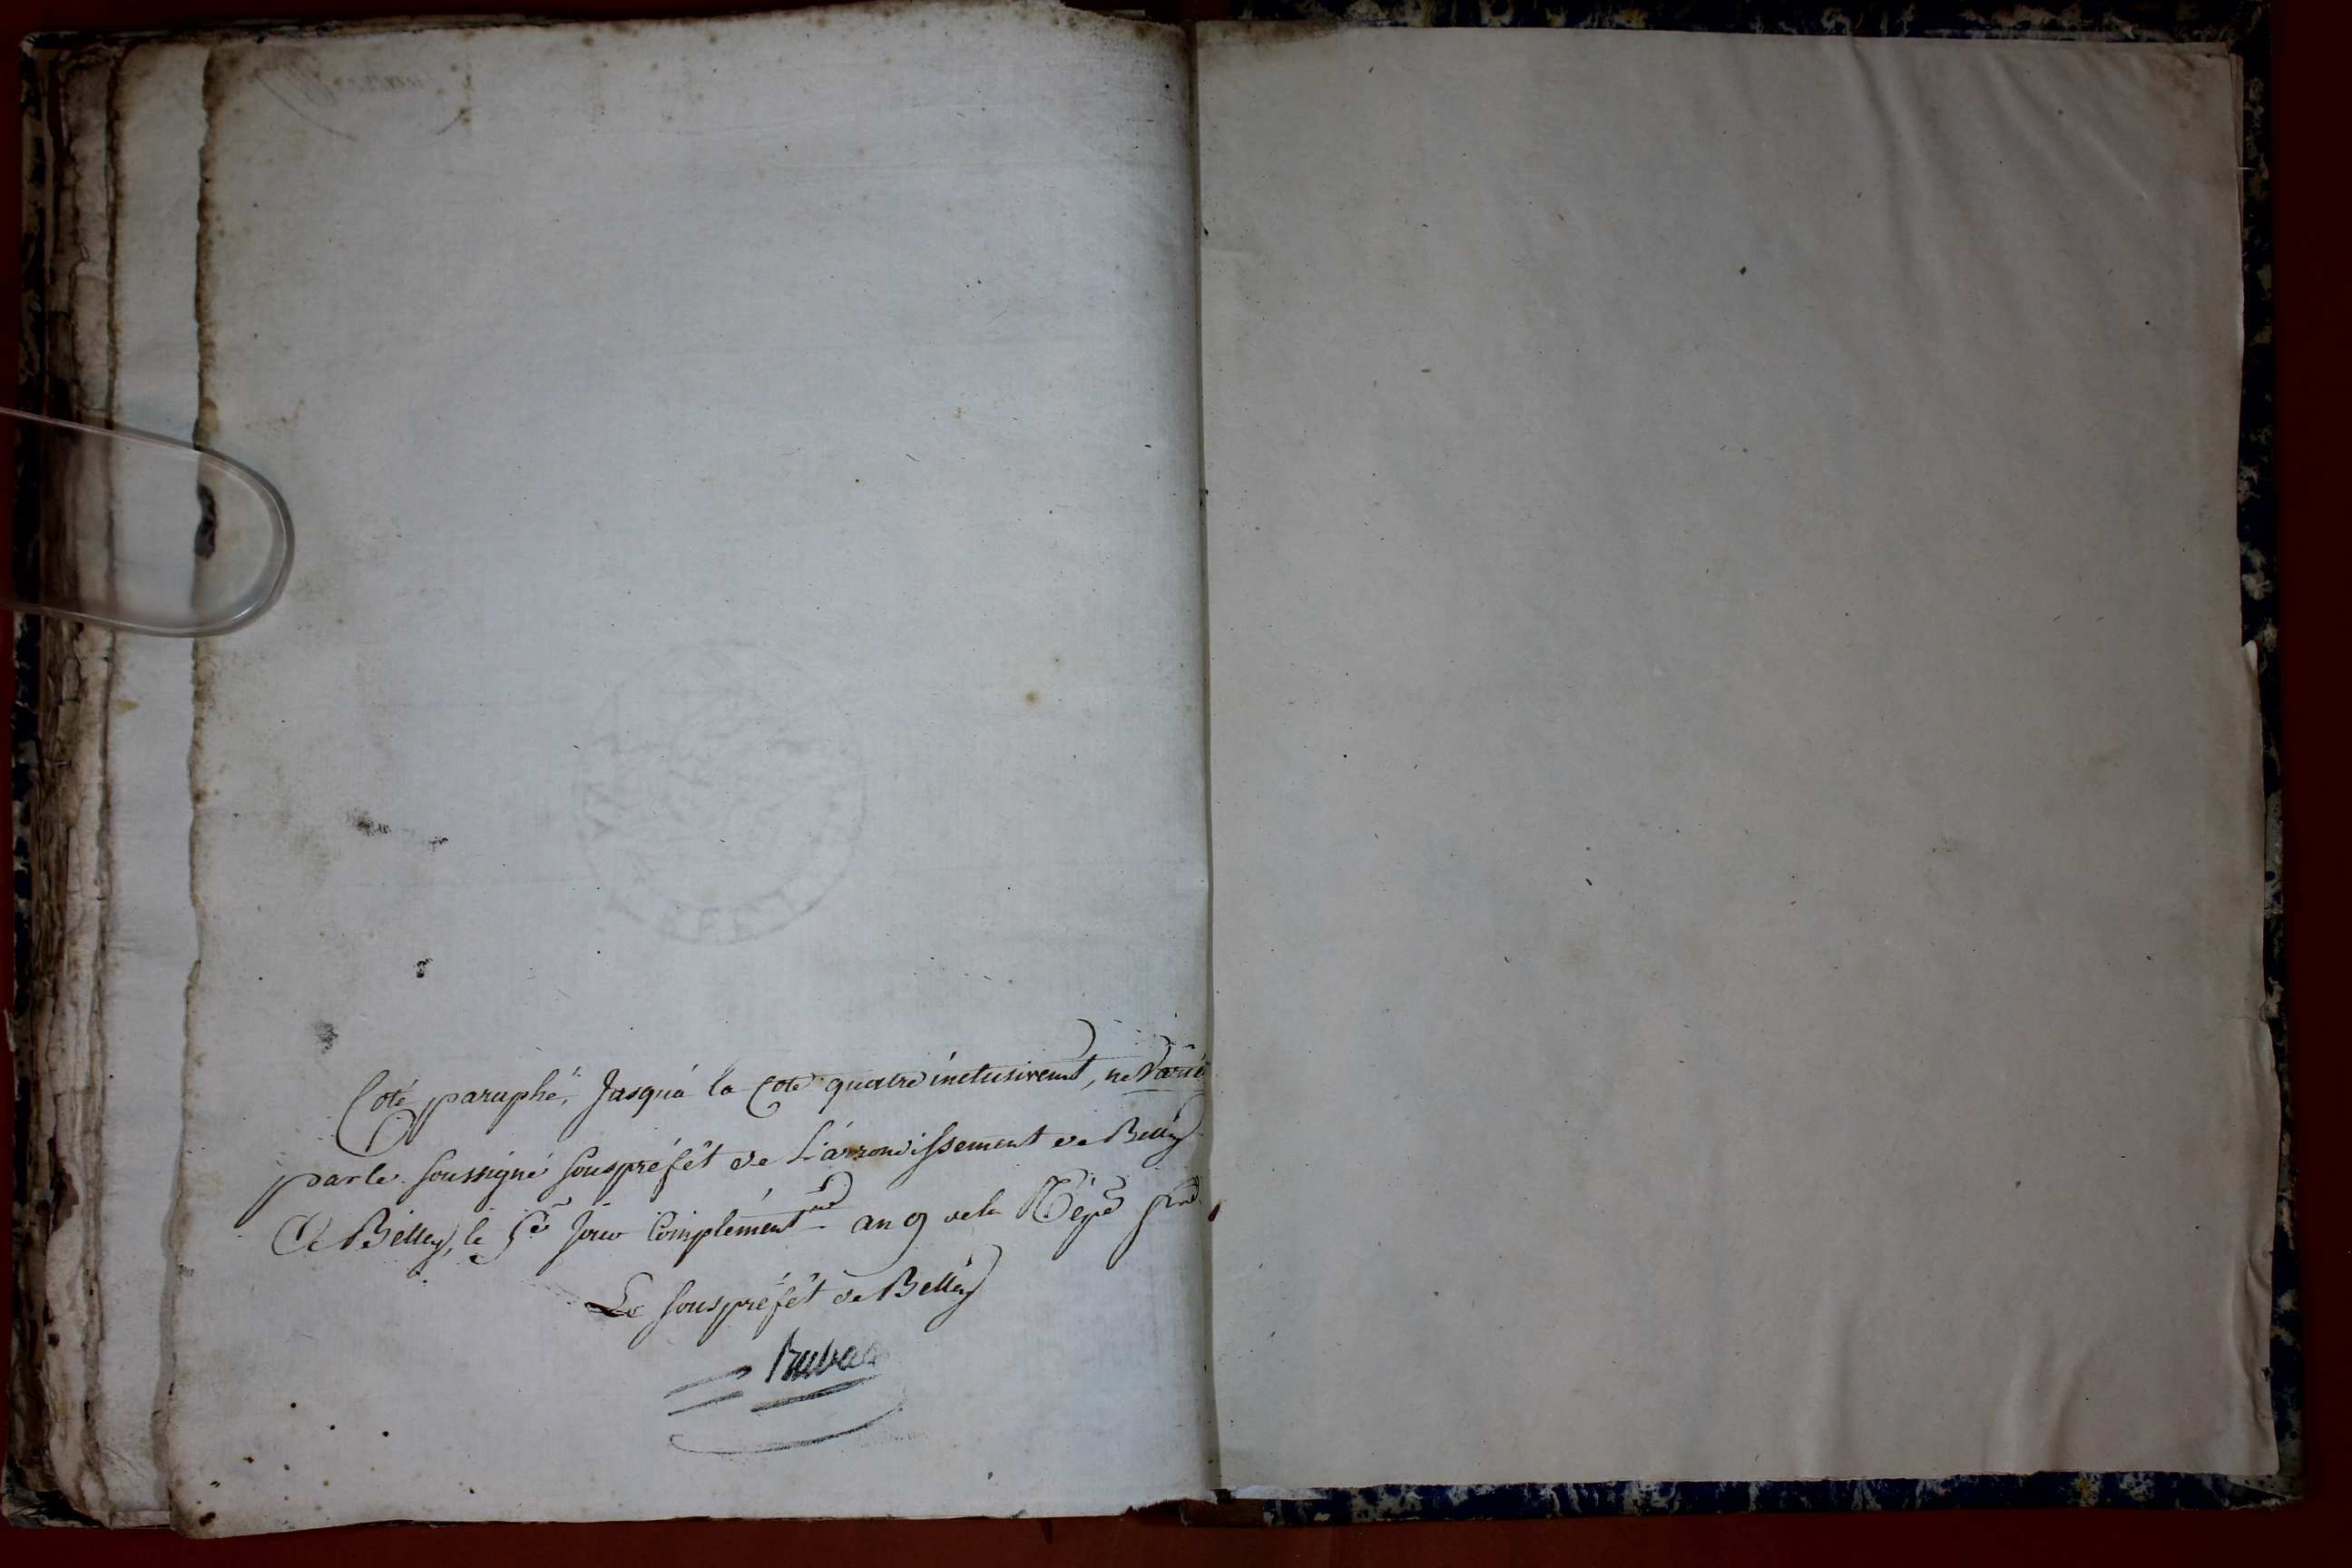 Coté paraphé, Jusqu'a la Cote quatre inclusivemt, ne Varié
par le soussigné souspréfét de L'arrondissement de Belley
A Belley, le 5e Jour Complémentre an 9 de la Répe fr
Le souspréfét de Belley